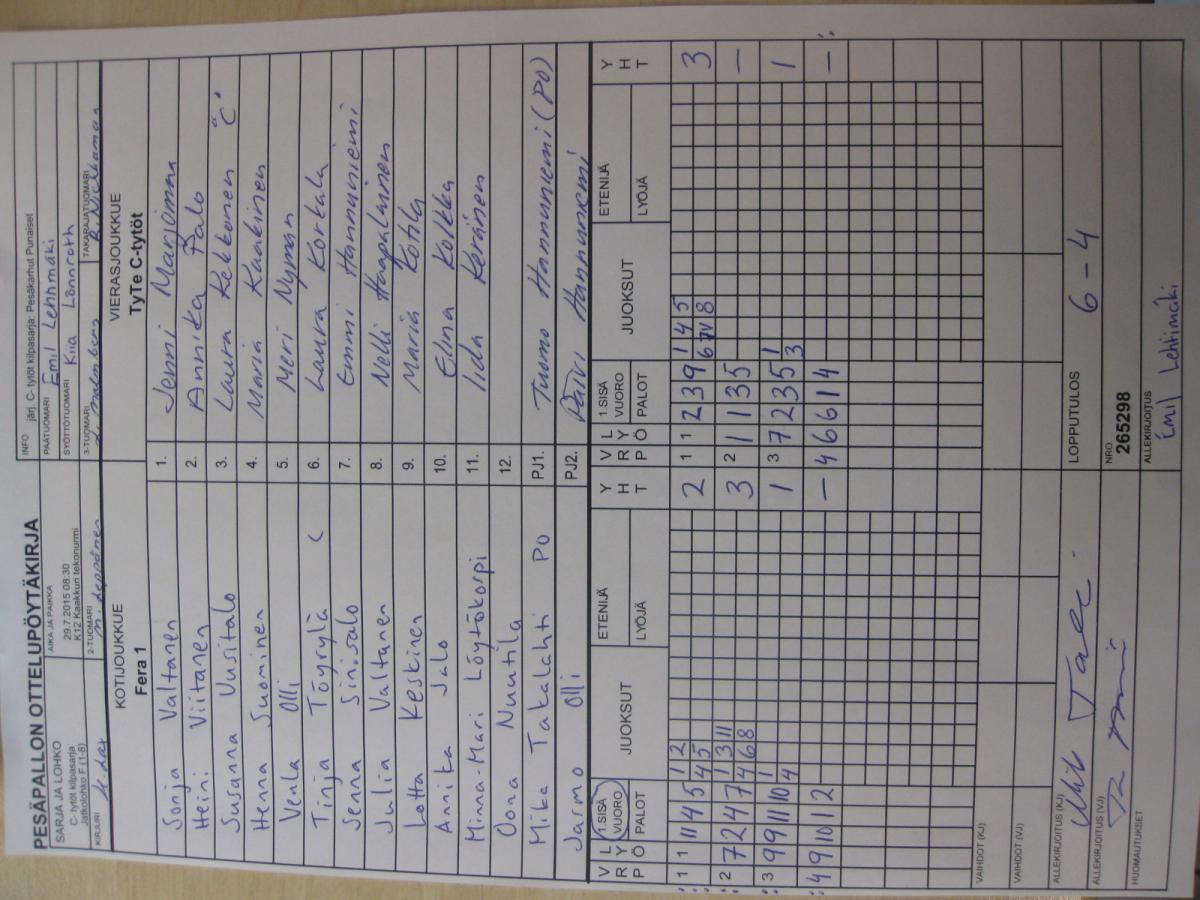 PESÄPALLON OTTELUPÖYTÄKIRJA
SARJA JA LOHKO
C- tytöt kilpasarja
Jatkolohko F (1-8)
AIKA JA PAIKKA
29.7.2015 08:30
K12 Kaakkuri tekonurmi
INFO järj. C- tytöt kilpasarja: Pesäkarhut Punaiset
PÄÄTUOMARI Emil Lehtimäki
SYÖTTÖTUOMARI Kiia Lönnroth
KIRJURI
2-TUOMARI
3-TUOMARI
TAKARAJATUOMARI
KOTIJOUKKUE
Fera 1
VIERASJOUKKUE
TyTe C-tytöt
Sonja Valtanen 1. Jenni Marjomaa
Heini Viitanen 2. Annika Palo
Susanna Uusitalo 3. Laura Kekkonen "C"
Henna Suominen 4. Maria Kaakinen
Venla Olli 5. Meri Nyman
Tinja Töyrylä C 6. Laura Korkala
Senna Sinisalo 7. Emmi Hannuniemi
Julia Valtanen 8. Nelli Haapalainen
Lotta Keskinen 9. Maria Kotila
Annika Jalo 10. Elina Kolkka
Minna-Mari Löytökorpi 11. Iida Keränen
Oona Nuutila 12.
Mika Takalahti PO PJ1. Tuomo Hannuniemi (PO)
Jarmo Olli PJ2. Päivi Hannuniemi
V R P L Y Ö 1.SISÄ VUORO PALOT JUOKSUT ETENIJÄ LYÖJÄ Y H T
V R P L Y Ö 1.SISÄ VUORO PALOT JUOKSUT ETENIJÄ LYÖJÄ Y H T
1 1 11 4 5 1 2 4 5 2
1 1 2 3 9 1 4 5 6 7V 8 3
2 7 2 4 7 1 3 11 4 6 8 3
2 1 1 3 5 –
3 9 9 11 10 1 4 1
3 7 2 3 5 1 3 1
4 9 10 1 2 –
4 6 6 1 4 –
VAIHDOT (KJ)
VAIHDOT (VJ)
ALLEKIRJOITUS (KJ)
LOPPUTULOS 6 – 4
ALLEKIRJOITUS (VJ)
NRO
265298
HUOMAUTUKSET
ALLEKIRJOITUS
Emil Lehtimäki